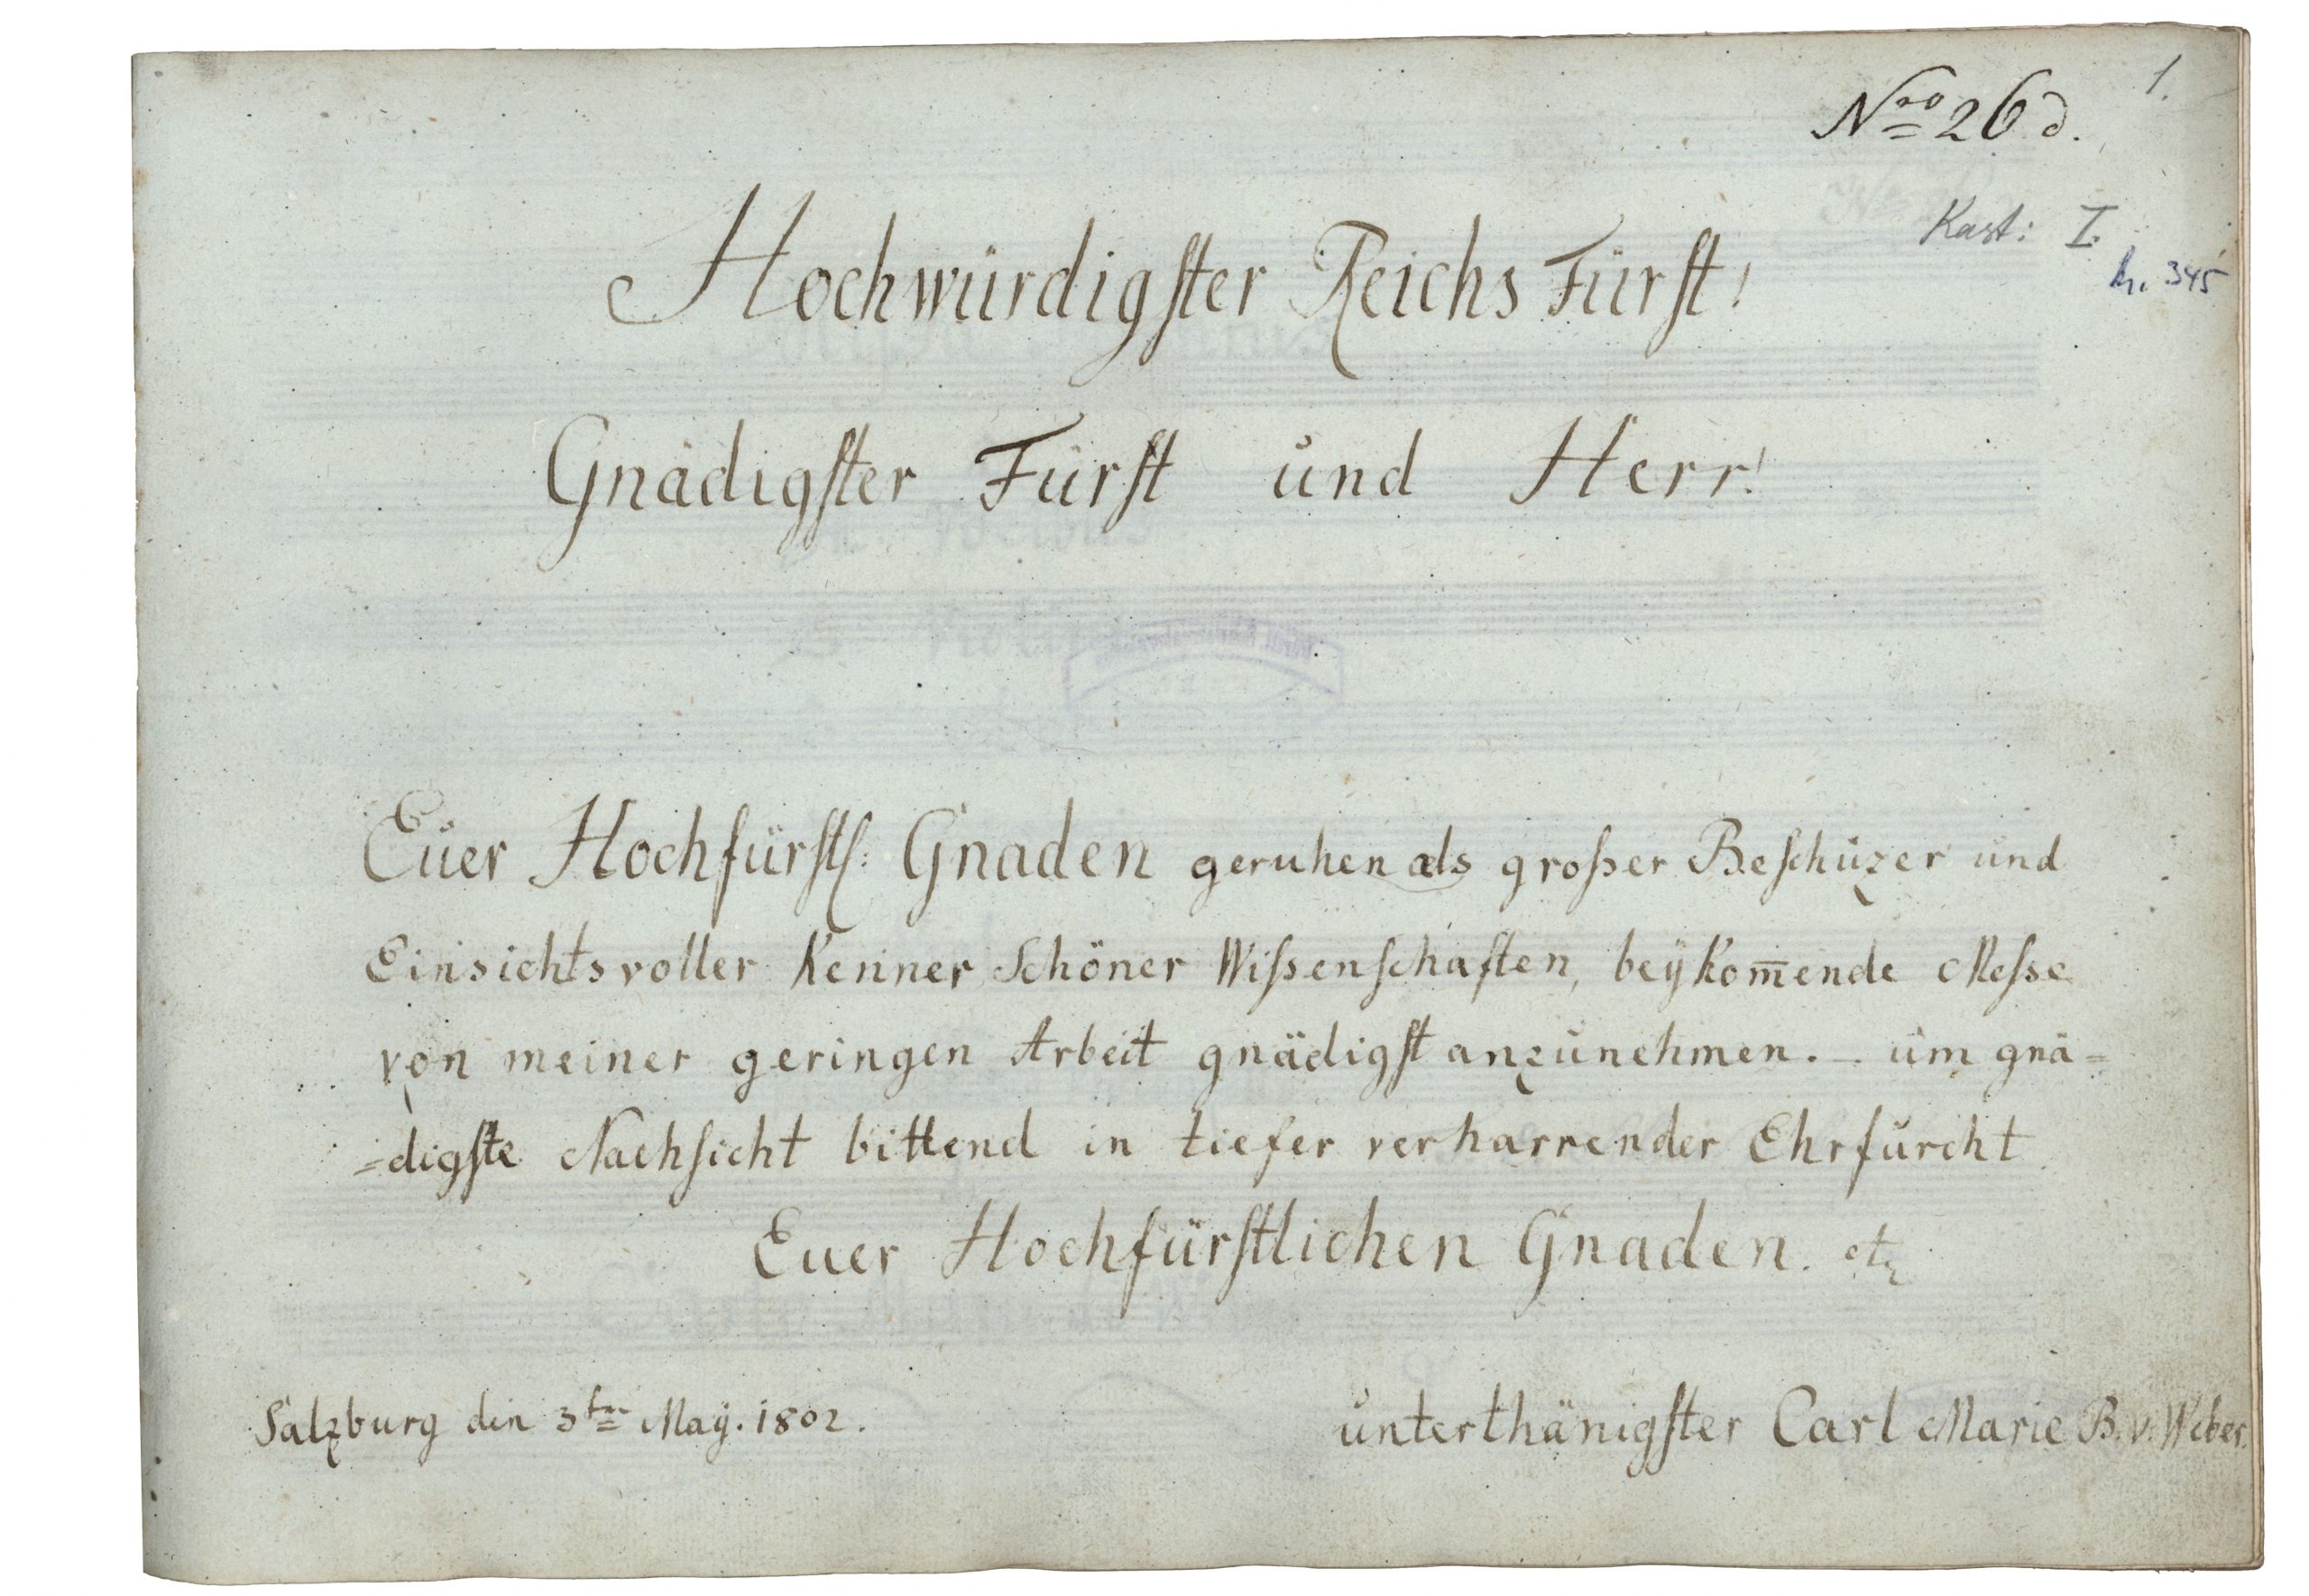 1.
Nro 26 d.
Kast: I.
Hochwürdigster Reichs Fürst!
N. 345
Gnädigster Fürst und Herr!
Euer Hochfürstl: Gnaden geruhen als großer Beschüzer und
Einsichtsvoller Kenner Schöner Wißenschaften, beÿkom̅ende Meße
von meiner geringen Arbeit gnädigst anzunehmen. – um gnä=
=digste Nachsicht bittend in tiefer verharrender Ehrfurcht
Euer Hochfürstlichen Gnaden. etz
Salzburg den 3ten Maÿ. 1802.
unterthänigster Carl Marie B. v. Weber.